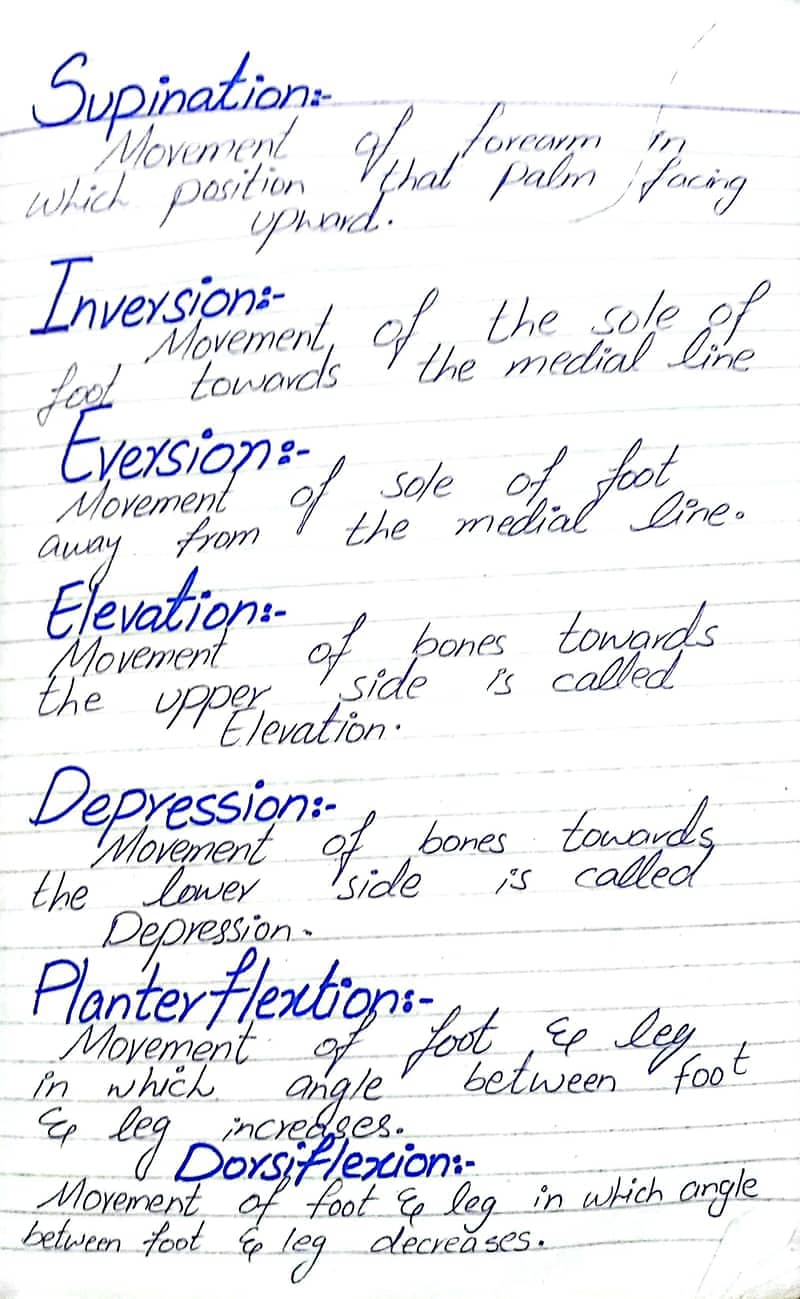 Supination:-
Movement of forearm in
which position that palm facing
upward.
Inversion:-
Movement of the sole of
foot towards the medial line
Eversion:-
Movement of sole of foot
away from the medial line.
Elevation:-
Movement of bones towards
the upper side is called
Elevation.
Depression:-
Movement of bones towards
the lower side is called
Depression.
Planterflextion:-
Movement of foot & leg
in which angle between foot
& leg increases.
Dorsiflexion:-
Movement of foot & leg in which angle
between foot & leg decreases.